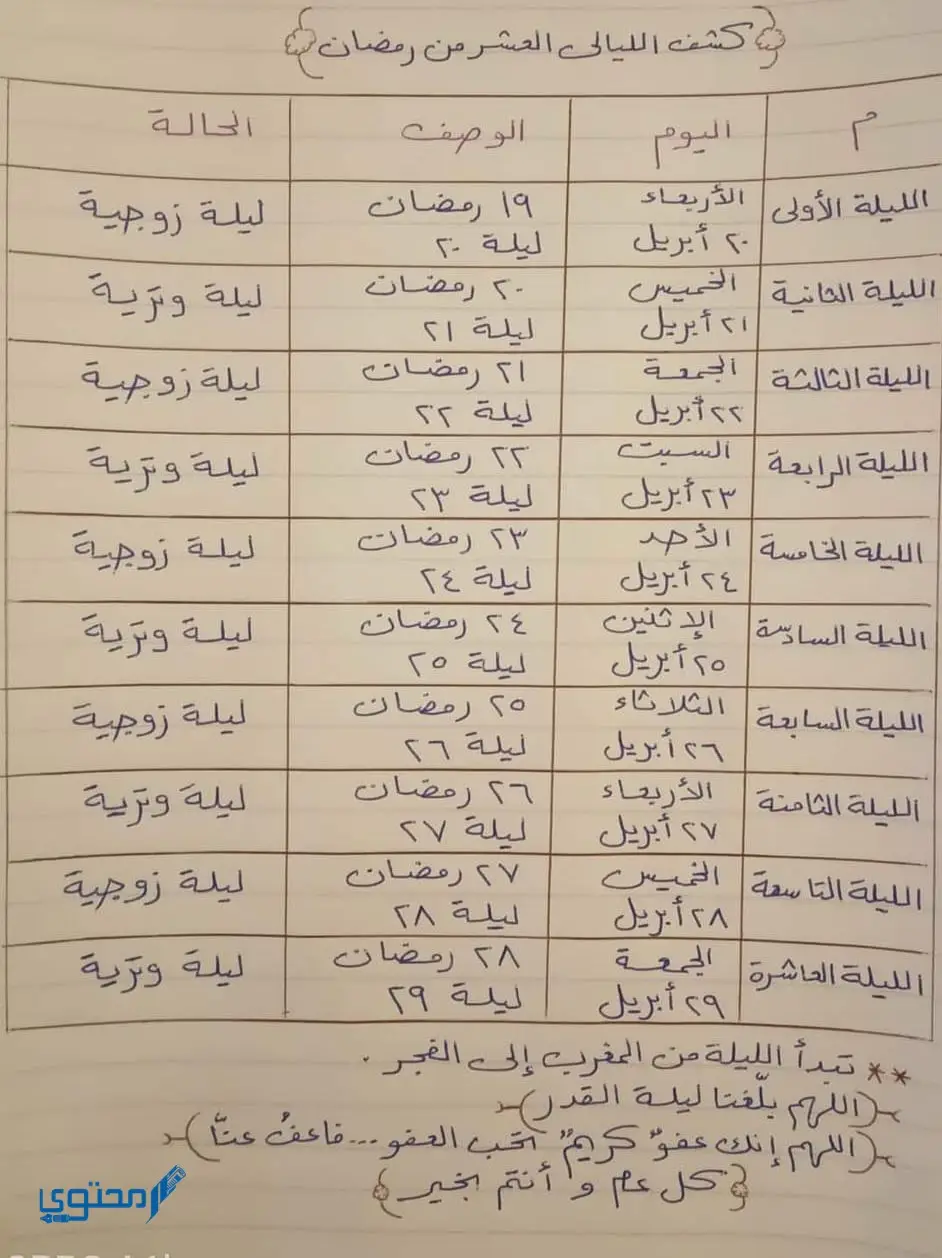 كشف الليالى العشر من رمضان
م اليوم الوصف الحالة
الليلة الأولى الأربعاء ١٩ رمضان ليلة زوجية
٢٠ أبريل ليلة ٢٠
الليلة الثانية الخميس ٢٠ رمضان ليلة وترية
٢١ أبريل ليلة ٢١
الليلة الثالثة الجمعة ٢١ رمضان ليلة زوجية
٢٢ أبريل ليلة ٢٢
الليلة الرابعة السبت ٢٢ رمضان ليلة وترية
٢٣ أبريل ليلة ٢٣
الليلة الخامسة الأحد ٢٣ رمضان ليلة زوجية
٢٤ أبريل ليلة ٢٤
الليلة السادسة الإثنين ٢٤ رمضان ليلة وترية
٢٥ أبريل ليلة ٢٥
الليلة السابعة الثلاثاء ٢٥ رمضان ليلة زوجية
٢٦ أبريل ليلة ٢٦
الليلة الثامنة الأربعاء ٢٦ رمضان ليلة وترية
٢٧ أبريل ليلة ٢٧
الليلة التاسعة الخميس ٢٧ رمضان ليلة زوجية
٢٨ أبريل ليلة ٢٨
الليلة العاشرة الجمعة ٢٨ رمضان ليلة وترية
٢٩ أبريل ليلة ٢٩
** تبدأ الليلة من المغرب إلى الفجر .
(اللهم بلّغنا ليلة القدر)
(اللهم إنك عفوٌ كريمٌ تحب العفو...فاعفُ عنّا)
كل عام و أنتم بخير
محتوى